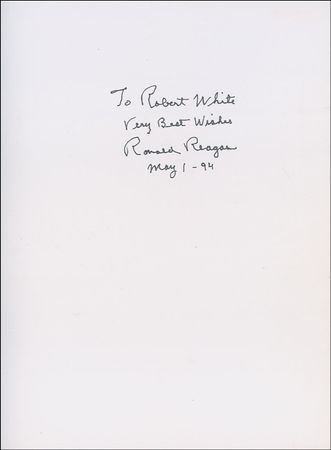 To Robert White
Very Best Wishes
Ronald Reagan
May 1 - 94